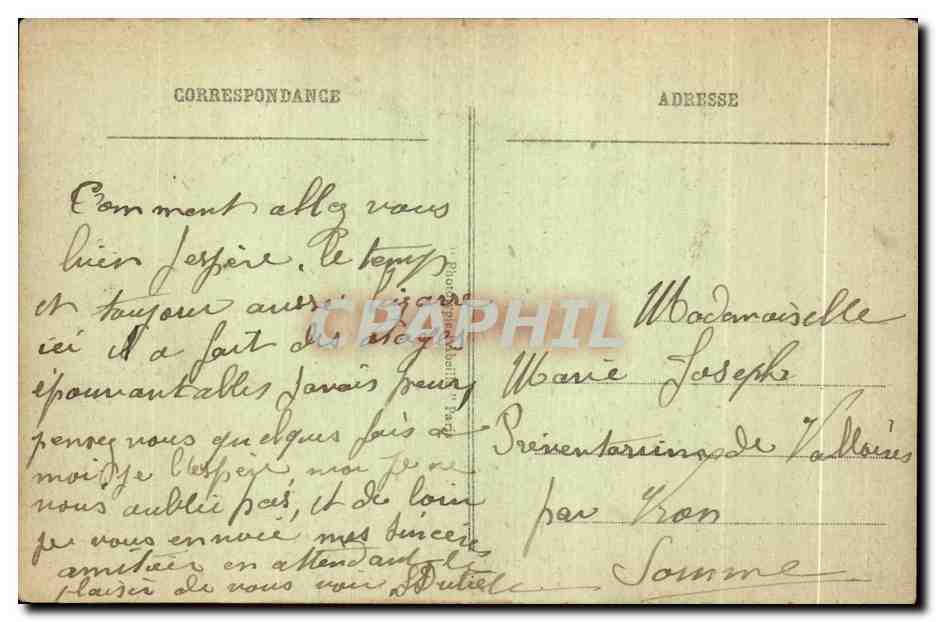 CORRESPONDANCE
Comment allez vous
bien j'espère. le temps
et toujour aussi bizarre
ici il a fait des orages
épouvantables j'avais peur,
pensez vous quelques fois a
moi, je l'espère moi je ne
vous oublie pas, et de loin
je vous envoie mes sincère
amitiés en attendant le
plaisir de vous voir
"Phototypie Abeille" Paris
ADRESSE
Mademoiselle
Marie Joseph
Préventorium de Valloires
par Vron
Somme
CPAPHIL